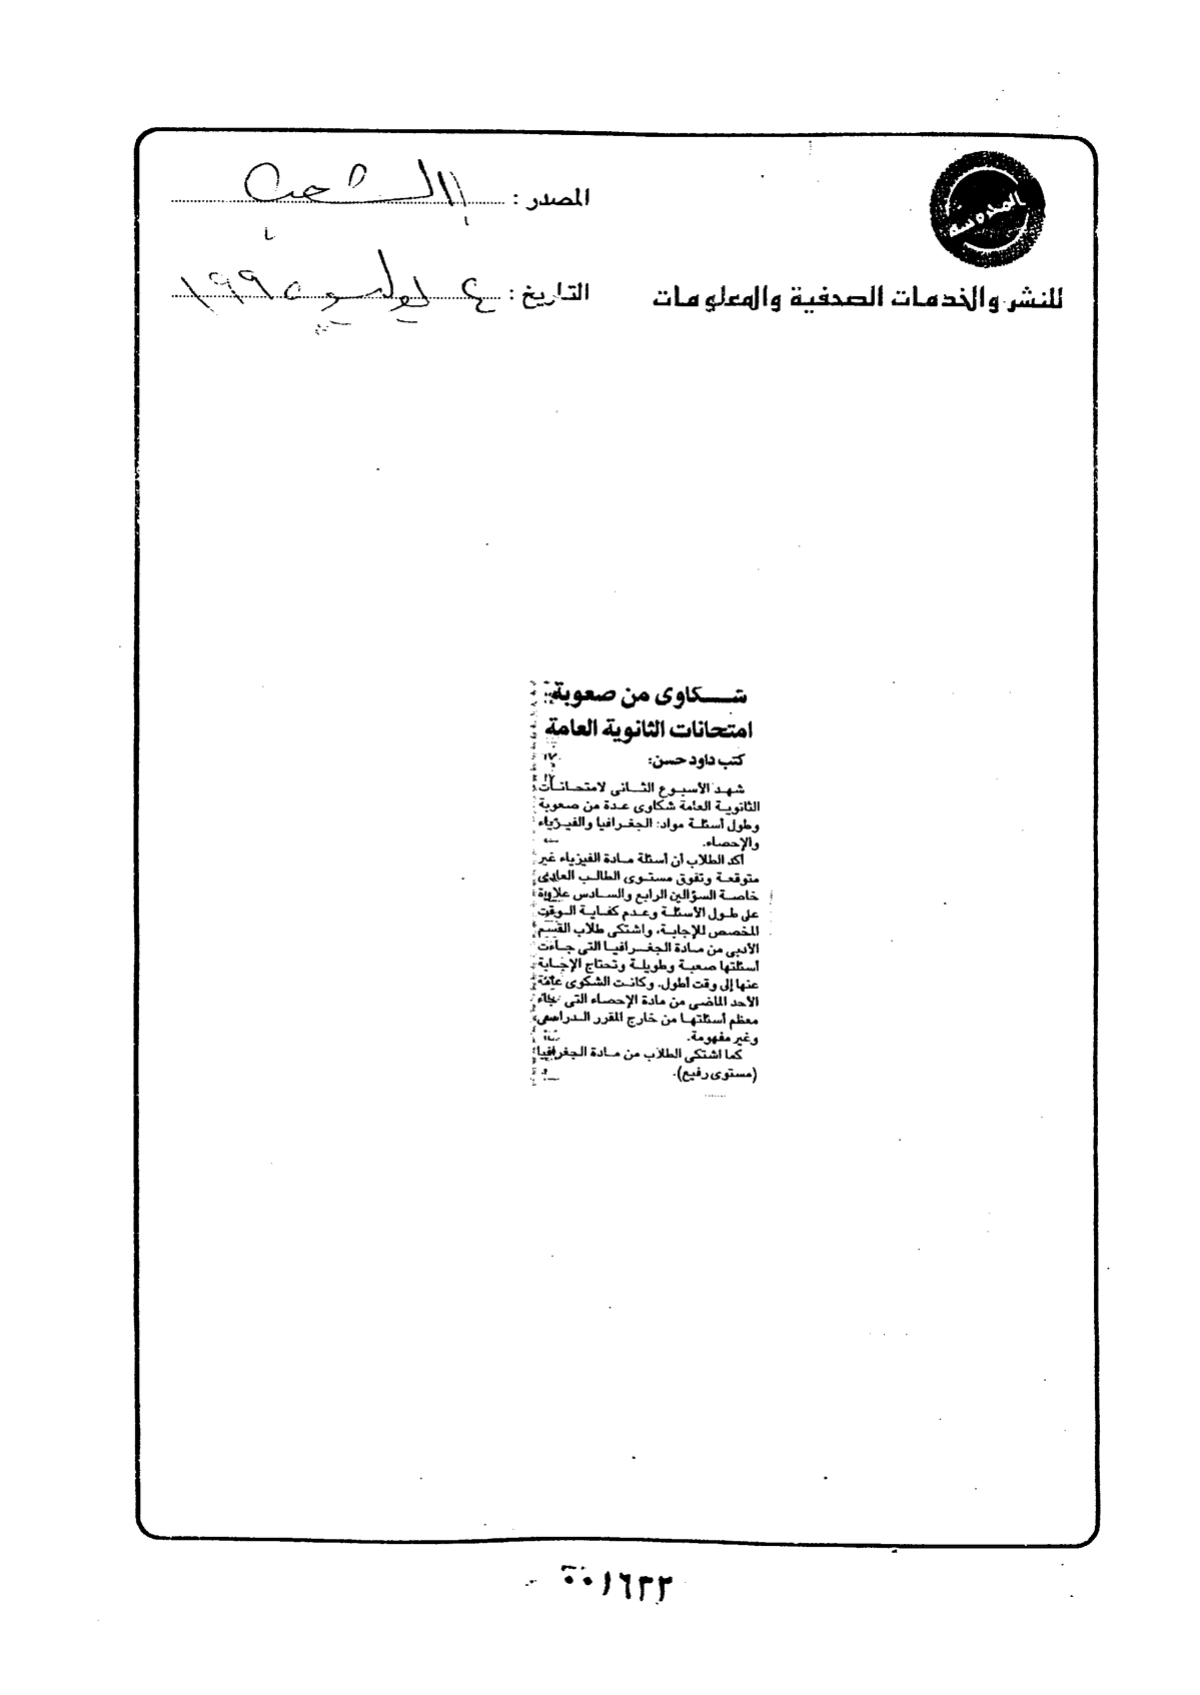 المحروسة
للنشر والخدمات الصحفية والمعلومات
المصدر : الشعب
التاريخ : ٤ يوليو ١٩٩٥
شكاوى من صعوبة
امتحانات الثانوية العامة
كتب داود حسن:
شهد الأسبوع الثانى لامتحانات
الثانوية العامة شكاوى عدة من صعوبة
وطول أسئلة مواد: الجغرافيا والفيزياء
والإحصاء.
أكد الطلاب أن أسئلة مادة الفيزياء غير
متوقعة وتفوق مستوى الطالب العادى
خاصة السؤالين الرابع والسادس علاوة
على طول الأسئلة وعدم كفاية الوقت
المخصص للإجابة، واشتكى طلاب القسم
الأدبى من مادة الجغرافيا التى جاءت
أسئلتها صعبة وطويلة وتحتاج الإجابة
عنها إلى وقت أطول. وكانت الشكوى عامة
الأحد الماضى من مادة الإحصاء التى جاء
معظم أسئلتها من خارج المقرر الدراسى
وغير مفهومة.
كما اشتكى الطلاب من مادة الجغرافيا
(مستوى رفيع).
٠٠١٦٣٣